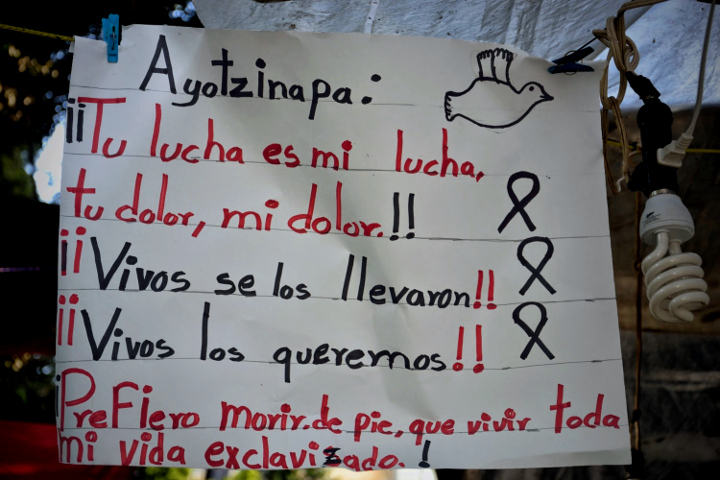 Ayotzinapa:
¡¡Tu lucha es mi lucha,
tu dolor, mi dolor.!!
¡¡Vivos se los llevaron!!
¡¡Vivos los queremos!!
¡Prefiero morir.de pie, que vivir toda
mi vida exclavizado.!